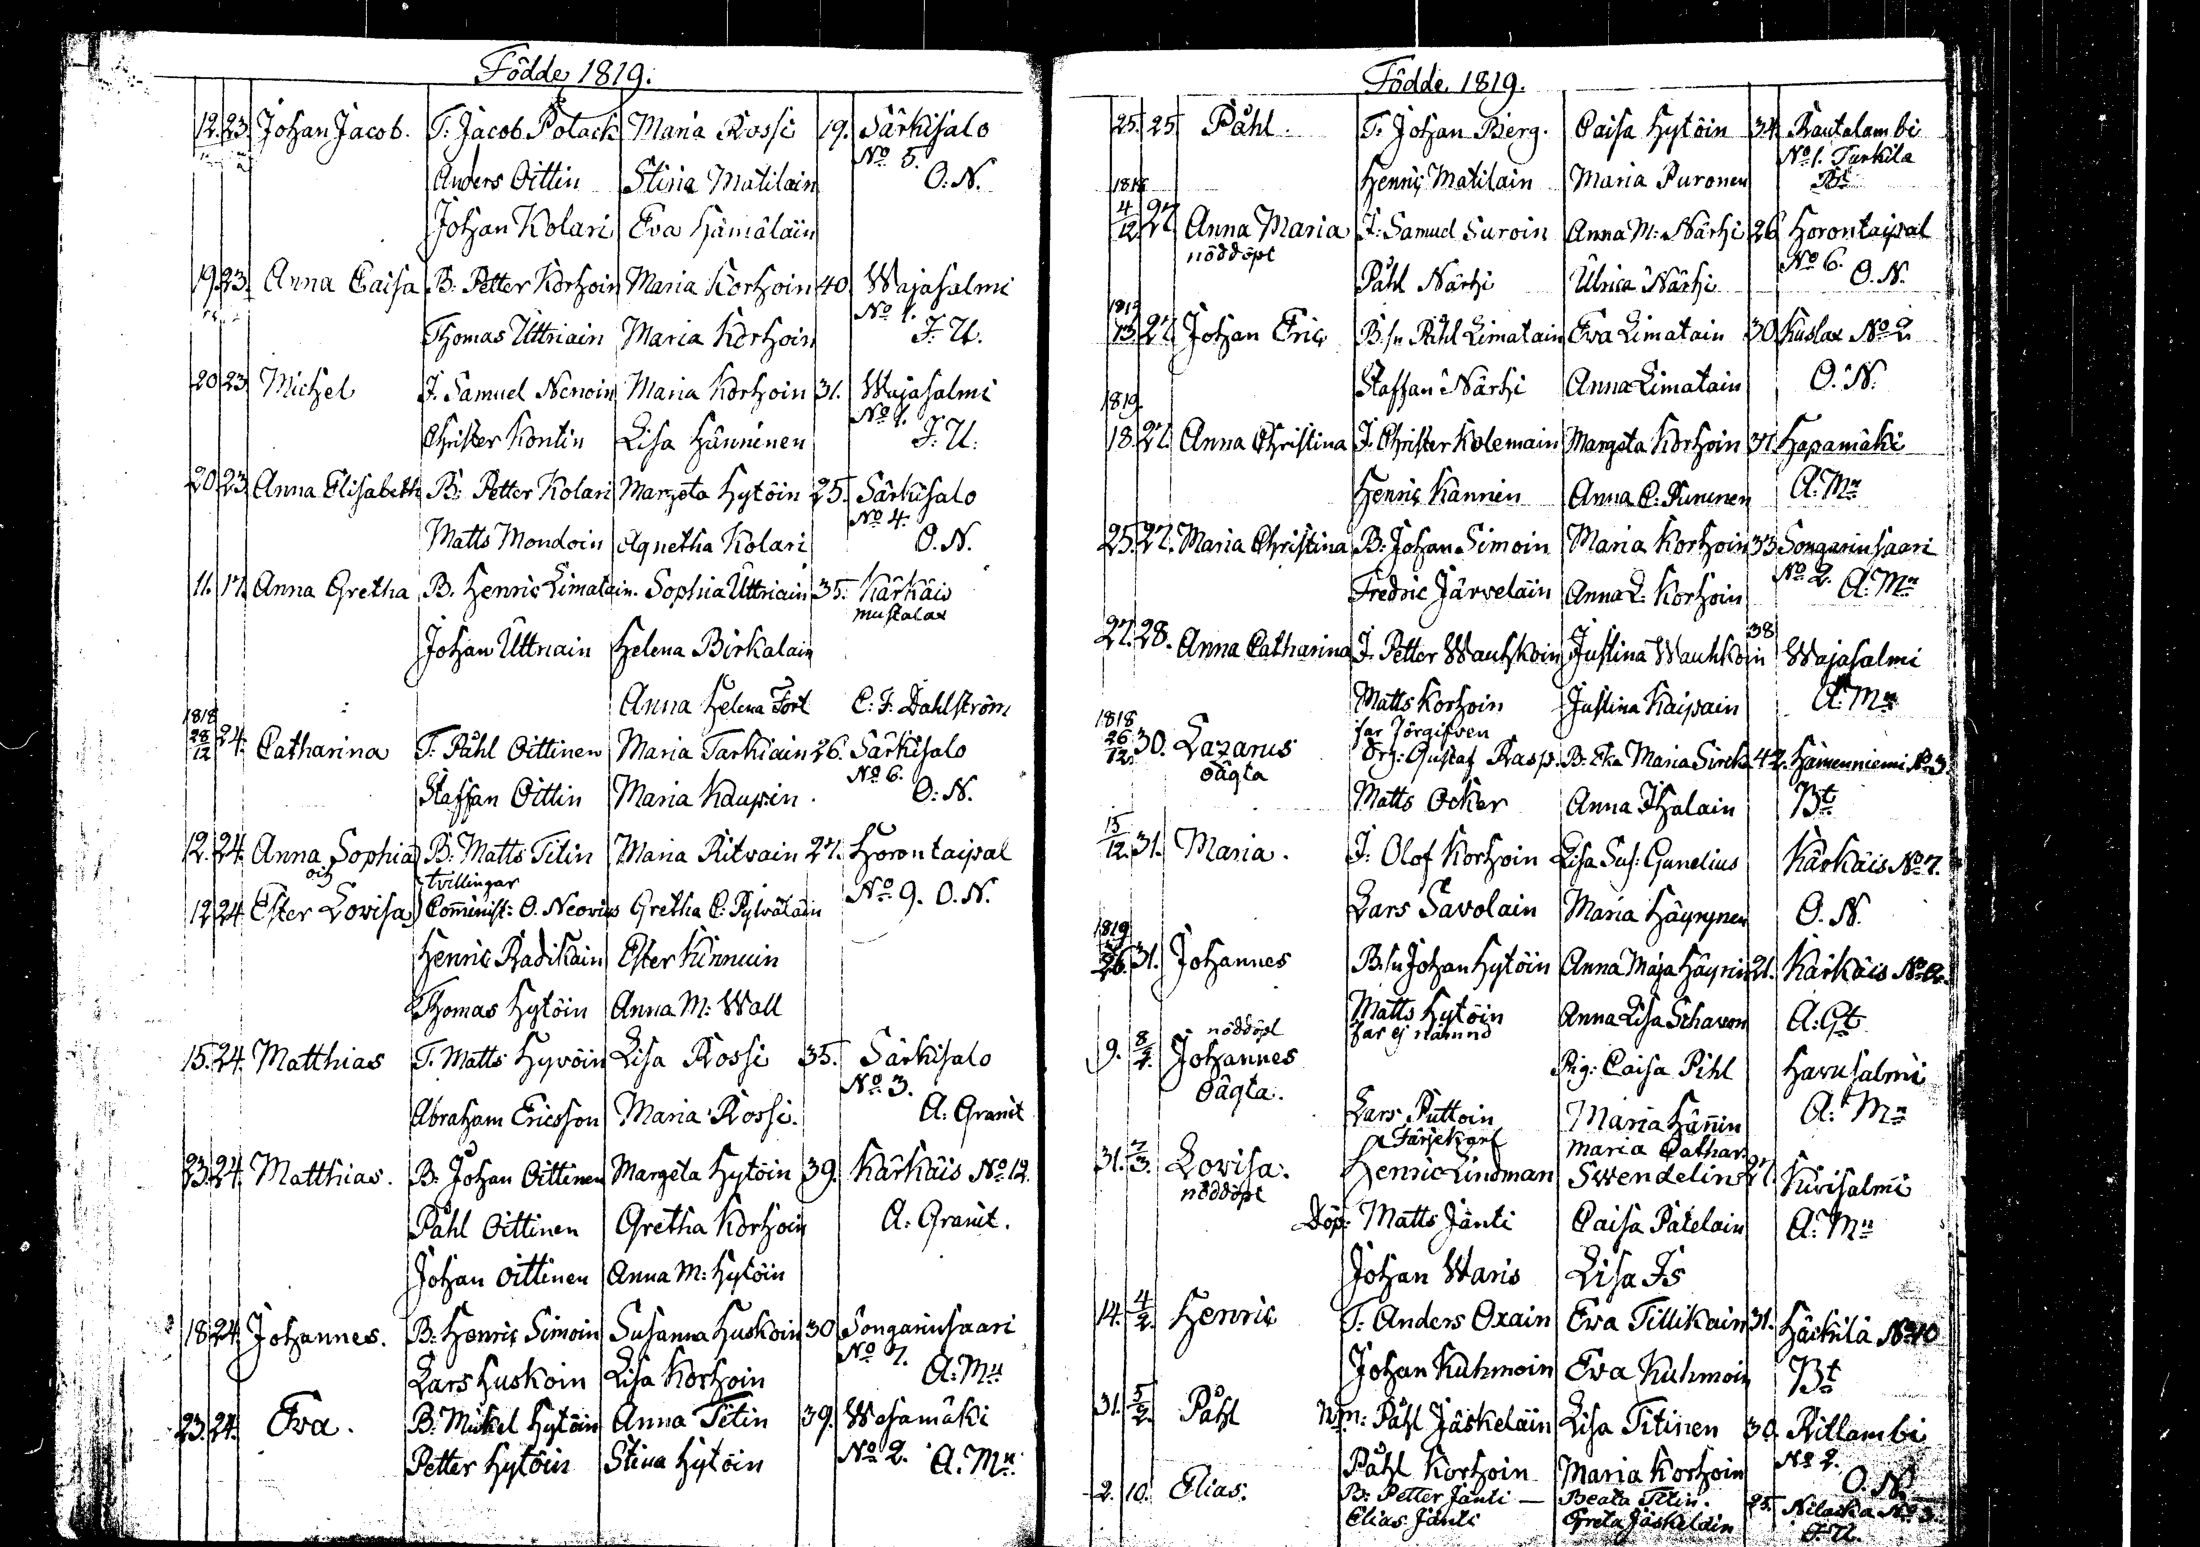 Födde 1819.
12. 23. Johan Jacob. T: Jacob Polack Maria Rossi 19. Särkisalo
No 5.
Anders Oittin Stina Matilain O. N.
Johan Kolari Eva Hämäläin
19. 23. Anna Caisa B: Petter Korhoin Maria Korhoin 40 Wajasalmi
No 1.
Thomas Uttriain Maria Korhoin F: U.
20 23 Michel I. Samuel Nenoin Maria Korhoin 31. Wajasalmi
No 1.
Christer Kontin Lisa Hänninen F: U.
20. 23. Anna Elisabeth B: Petter Kolari Margeta Hytöin 25. Särkisalo
No 4.
Matts Mondoin Agnetha Kolari O. N.
11. 17. Anna Gretha B. Henric Limatain. Sophia Uttriain 35. Kärkäis
mustalax
Johan Uttriain Helena Birkalain
Anna Helena Fort C. F. Dahlström
1818
28/12 24. Catharina T: Påhl Oittinen Maria Tarkiain 26. Särkisalo
No 6.
Staffan Oittin Maria Kaupin. O: N.
12. 24. Anna Sophia B. Matts Titin Maria Ritvain 27. Horontaipal
och tvillingar
No 9. O. N.
12 24 Ester Lovisa Comminist: O. Neovius Gretha C: Pylvälain
Henric Radikain Ester Kinnuin
Thomas Hytöin Anna M: Wall
15. 24. Matthias T. Matts Hyvöin Lisa Rossi 35. Särkisalo
No 3.
Abraham Ericsson Maria Rossi. A: Granit
23. 24. Matthias. B: Johan Oittinen Margeta Hytöin 39. Kärkäis No 12.
Påhl Oittinen Gretha Korhoin A: Granit.
Johan Oittinen Anna M: Hytöin
18 24. Johannes. B: Henric Simoin Susanna Huskoin 30 Songarinsaari
No 7.
Lars Huskoin Lisa Korhoin A: Mn
23. 24. Eva. B: Mickel Hytöin Anna Titin 39. Wesamäki
Petter Hytöin Stina Hytöin No 2. A. Mn
Födde 1819.
25. 25 Påhl. T. Johan Berg. Caisa Hytöin 34 Rautalambi
No 1. Turkila
Henric Matilain Maria Puronen Bt
1818
4/12 27. Anna Maria I: Samuel Suroin Anna M: Närhi 26 Horontaipal
nöddöpt
No 6.
Påhl Närhi Ulrica Närhi O. N.
1819
13. 27. Johan Eric B:sn Påhl Limatain Eva Limatain 30 Kuslax No 2.
Staffan Närhi Anna Limatain O. N.
1819
18. 27. Anna Christina I. Christer Kolemain Margeta Korhoin 37 Hapamäki
Henric Kännin Anna C: Puninen A: Mn
25. 27. Maria Christina B: Johan Simoin Maria Korhoin 33 Songarinsaari
No 2.
Fredric Järveläin Anna L: Korhoin A: Mn
38
27. 28. Anna Catharina I. Petter Wauhkoin Justina Wauhkoin Wajasalmi
Matts Korhoin Justina Kaipain A: Mn
1818
far Törgifven
26/12. 30. Lazarus Drg: Gustaf Rasp. B: Eka Maria Sirck 42. Hämenniemi No 3.
oägta
Matts Ocker Anna Ihalain Bt
15/12. 31. Maria. I: Olof Korhoin Lisa Sus: Gunelius Kärkäis No 7.
Lars Savolain Maria Häyrynen O. N.
1819
26. 31. Johannes B:sn Johan Hytöin Anna Maja Häyrin 21. Kärkäis No 2.
Matts Hytöin Anna Lisa Schavon A: Gt
nöddöpt far ej nämnd
9. 8/2. Johannes Pig: Caisa Pihl Havusalmi
oägta.
Lars Puttoin Maria Hänin A: Mn
Färjekarl Maria Cathar.
31. 7/3. Lovisa. Henric Lindman Swendelin 27. Kivisalmi
nöddöpt
Döp: Matts Jänti Caisa Patelain A: Mn
Johan Waris Lisa Is
14. 4/2. Henric T: Anders Oxain Eva Tillikain 31. Häckilä No 10
Johan Kuhmoin Eva Kuhmoin Bt
31. 5/2. Påhl Påhl Jäskeläin Lisa Titinen 30. Ritlambi
No 2.
Påhl Korhoin Maria Korhoin O. N.
2. 10. Elias. B: Petter Jänti — Beata Titin. 25. Nilacka No 3.
Elias Jänti Greta Jäskeläin F: U.